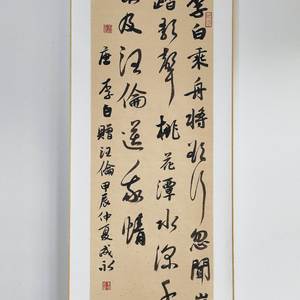 李白乘舟将欲行忽闻岸
踏歌声桃花潭水深千
不及汪伦送我情
唐 李白赠汪伦 甲辰仲夏成